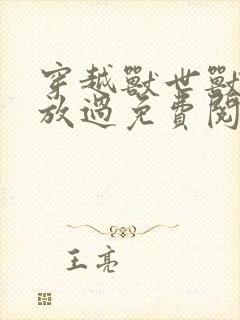 穿越獸世獸
放過免費閱
王亮